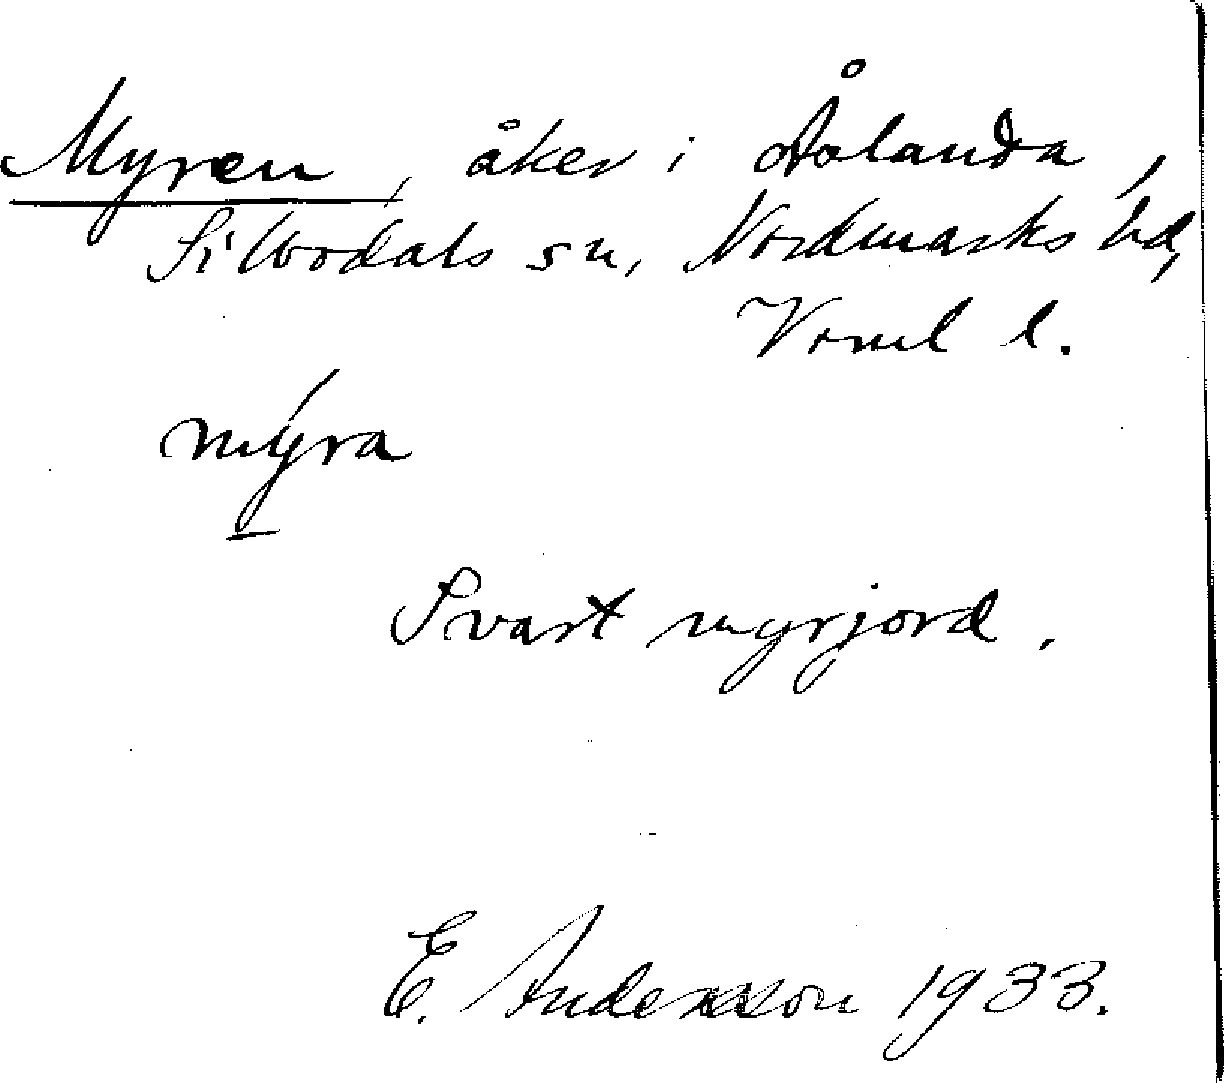 Myren, åker i
Silbodals sn, Nordmarks hd,
Vrml l.
mýra
Svart myrjord.
E. Andersson 1933.